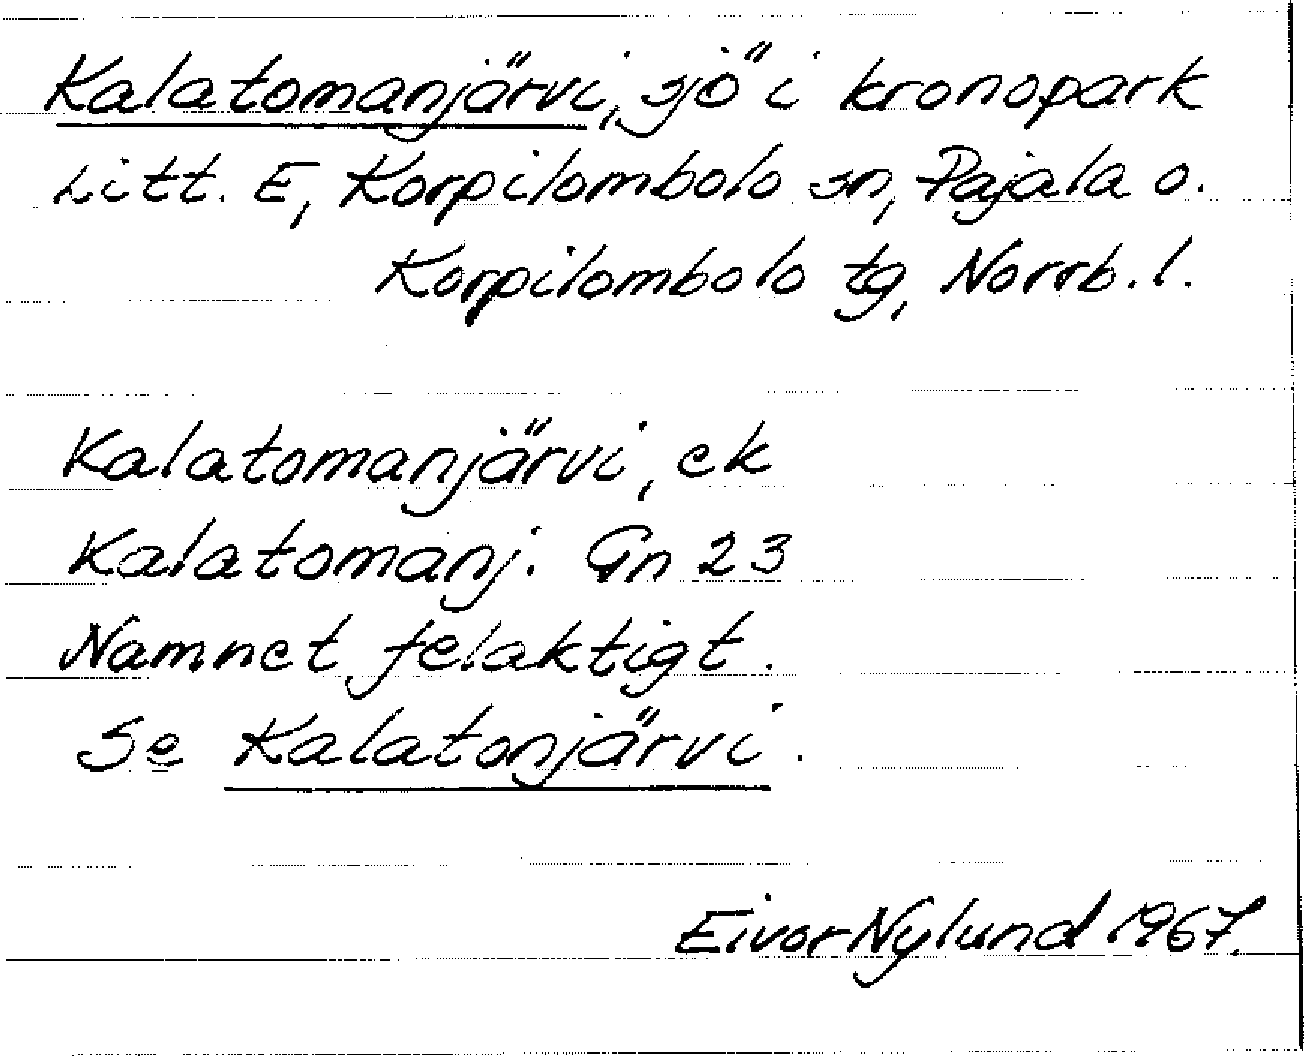 Kalatomanjärvi, sjö i kronopark
Litt. E, Korpilombolo sn, Pajala o.
Korpilombolo tg, Norrb. l.
Kalatomanjärvi, ek
Kalatomanj. Gn 23
Namnet felaktigt.
Se Kalatonjärvi.
Eivor Nylund 1967.